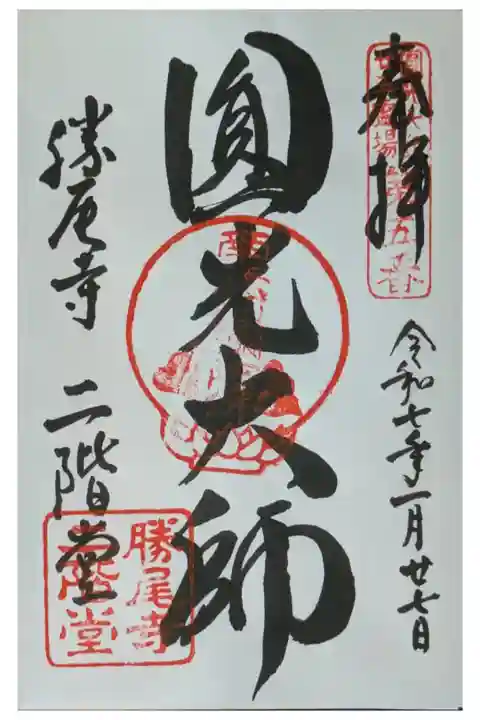 奉拝
第五番
令和七年一月廿七日
圓光大師
勝尾寺 二階堂
勝尾寺
二階堂